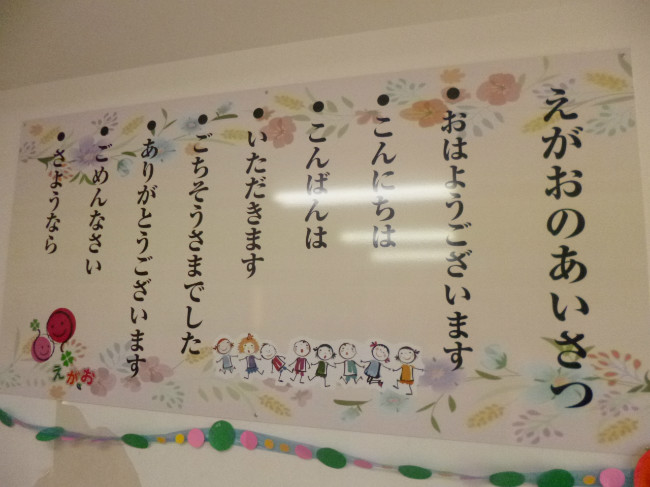 えがおのあいさつ
●おはようございます
●こんにちは
●こんばんは
●いただきます
●ごちそうさまでした
●ありがとうございます
●ごめんなさい
●さようなら
えがお